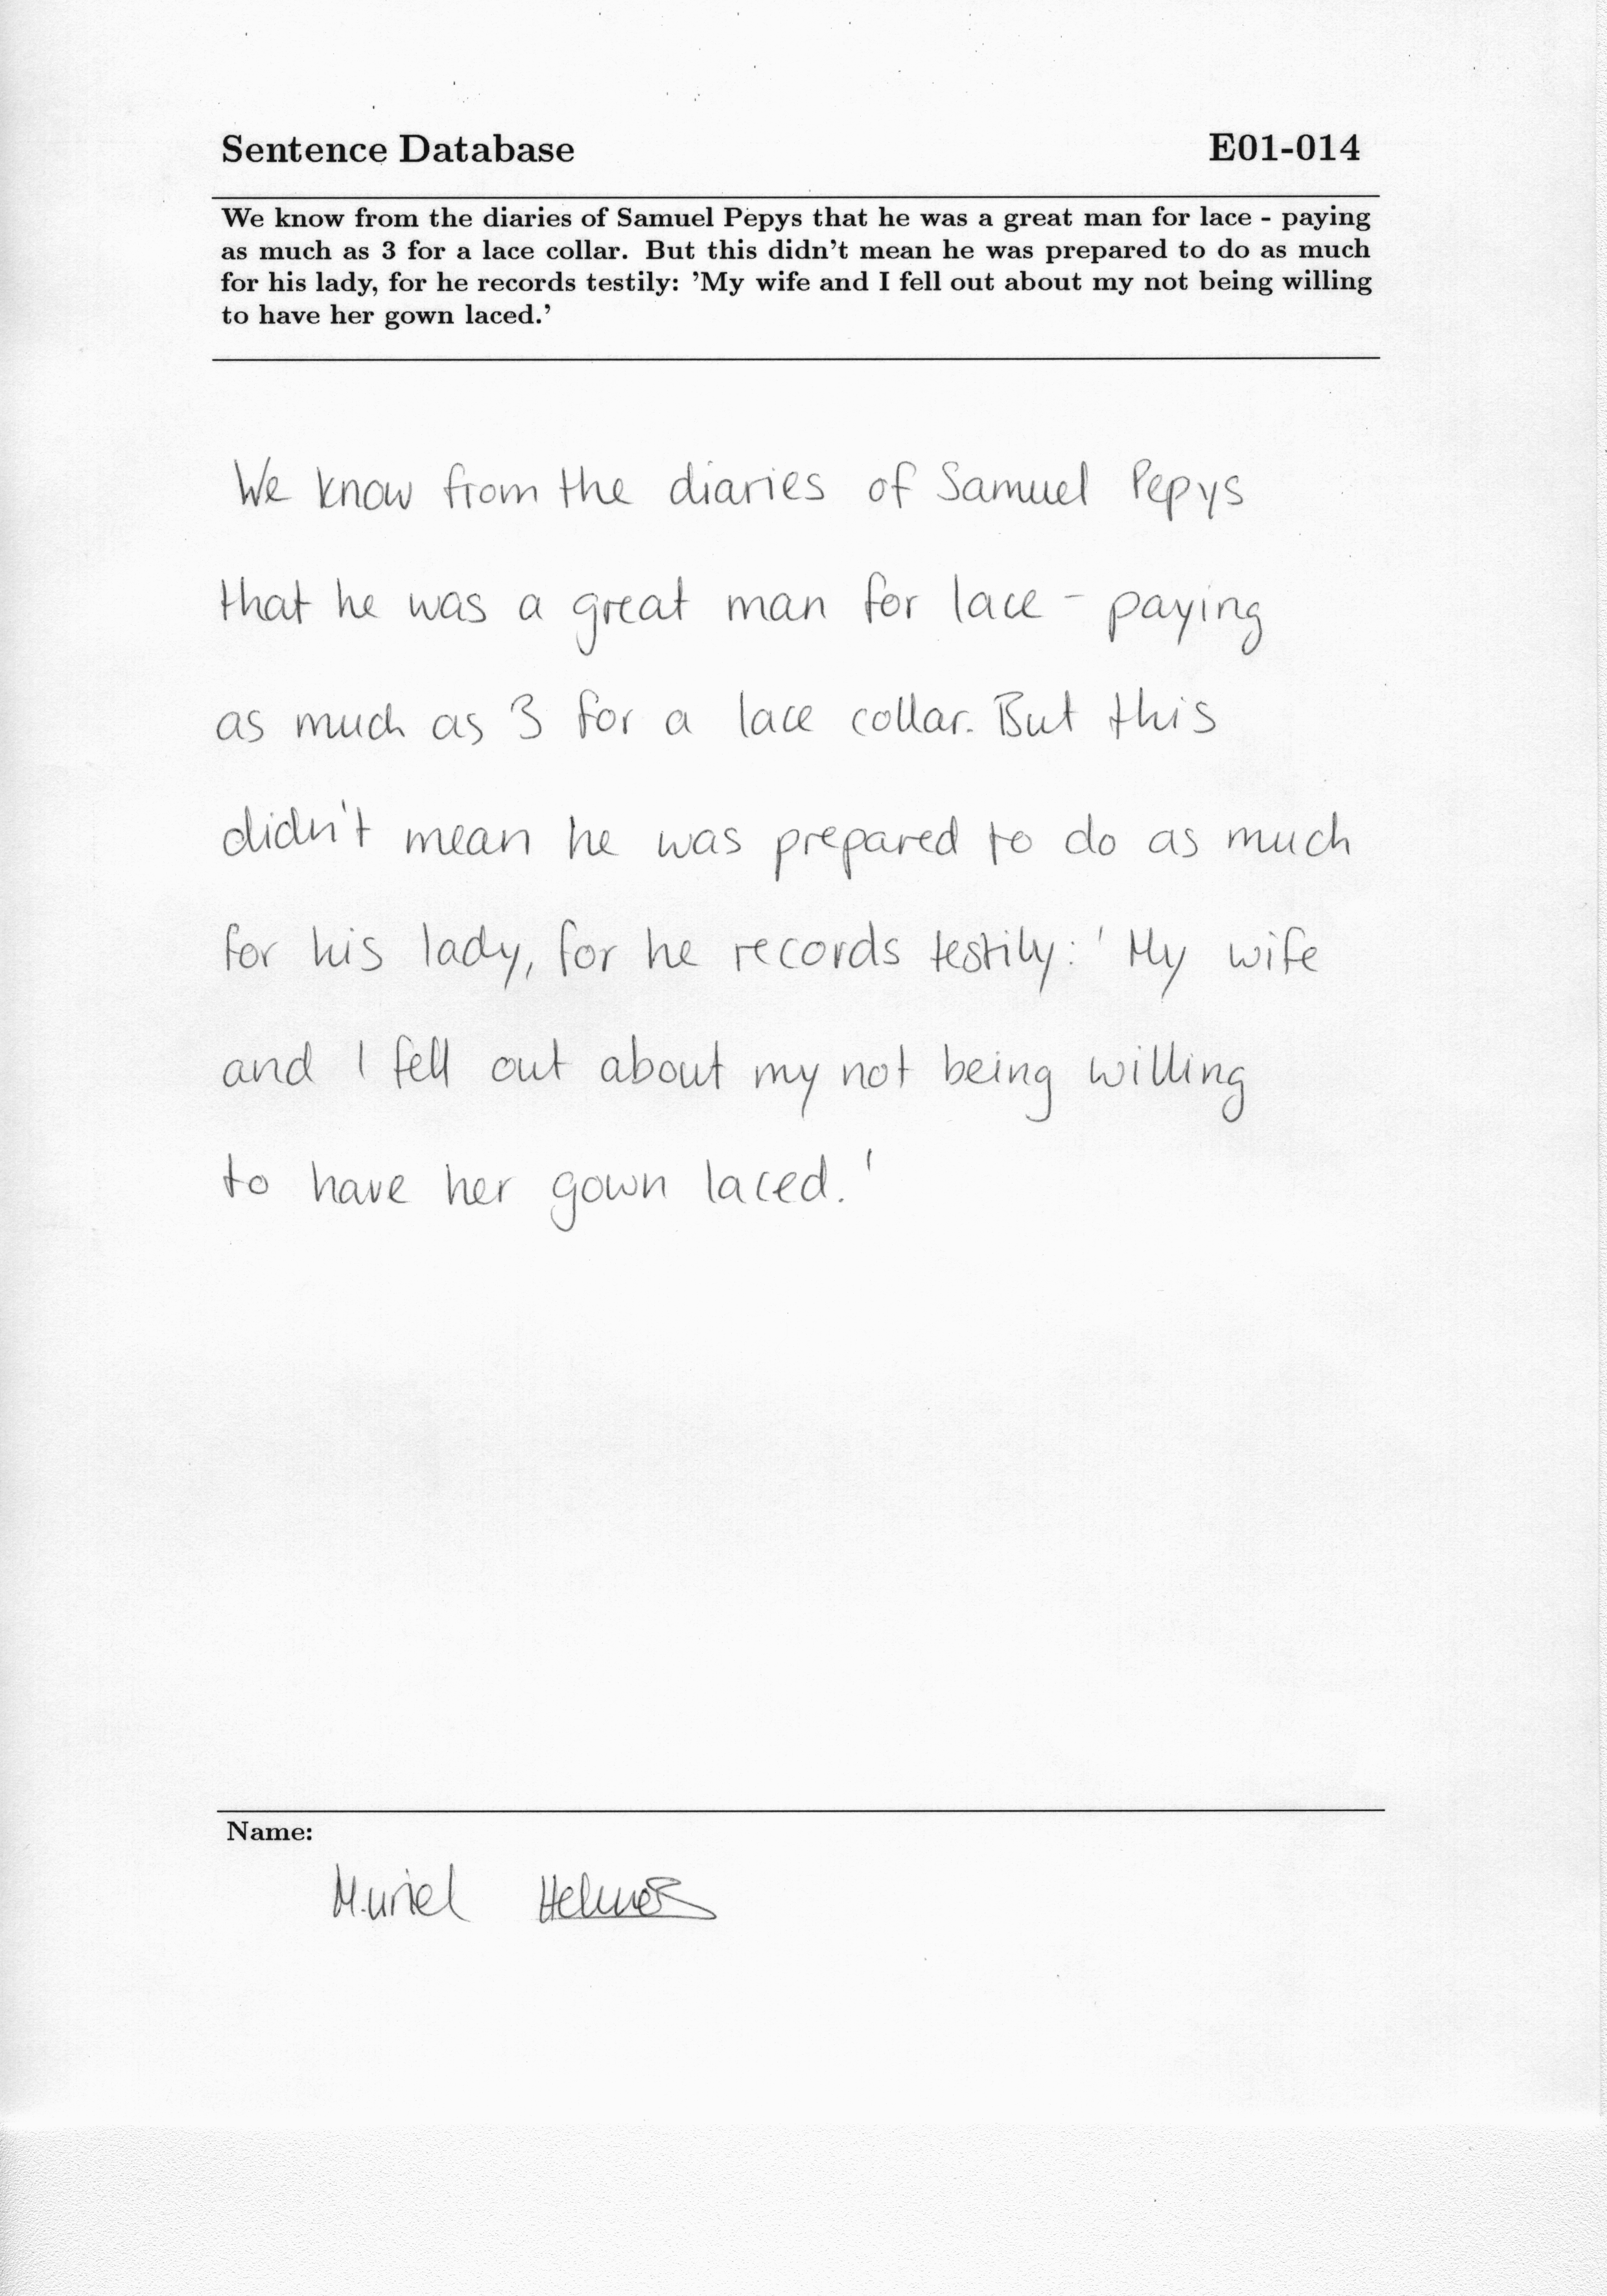 Sentence Database E01-014
We know from the diaries of Samuel Pepys that he was a great man for lace - paying
as much as 3 for a lace collar. But this didn't mean he was prepared to do as much
for his lady, for he records testily: 'My wife and I fell out about my not being willing
to have her gown laced.'
We know from the diaries of Samuel Pepys
that he was a great man for lace - paying
as much as 3 for a lace collar. But this
didn't mean he was prepared to do as much
for his lady, for he records testily: 'My wife
and I fell out about my not being willing
to have her gown laced.'
Name:
Muriel